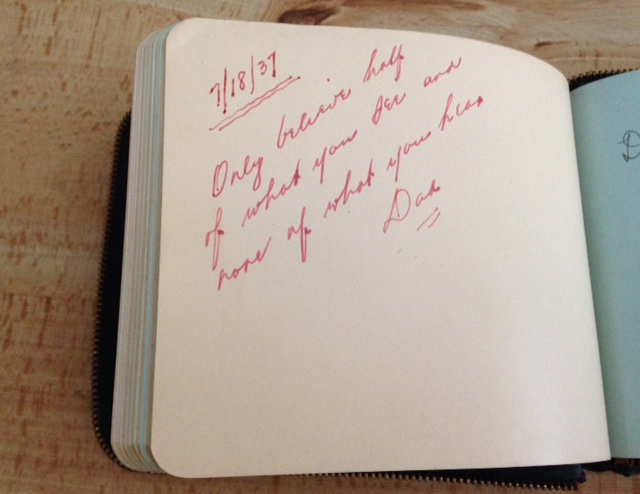 7/18/37
Only believe half
of what you see and
none of what you hear
Dad
D